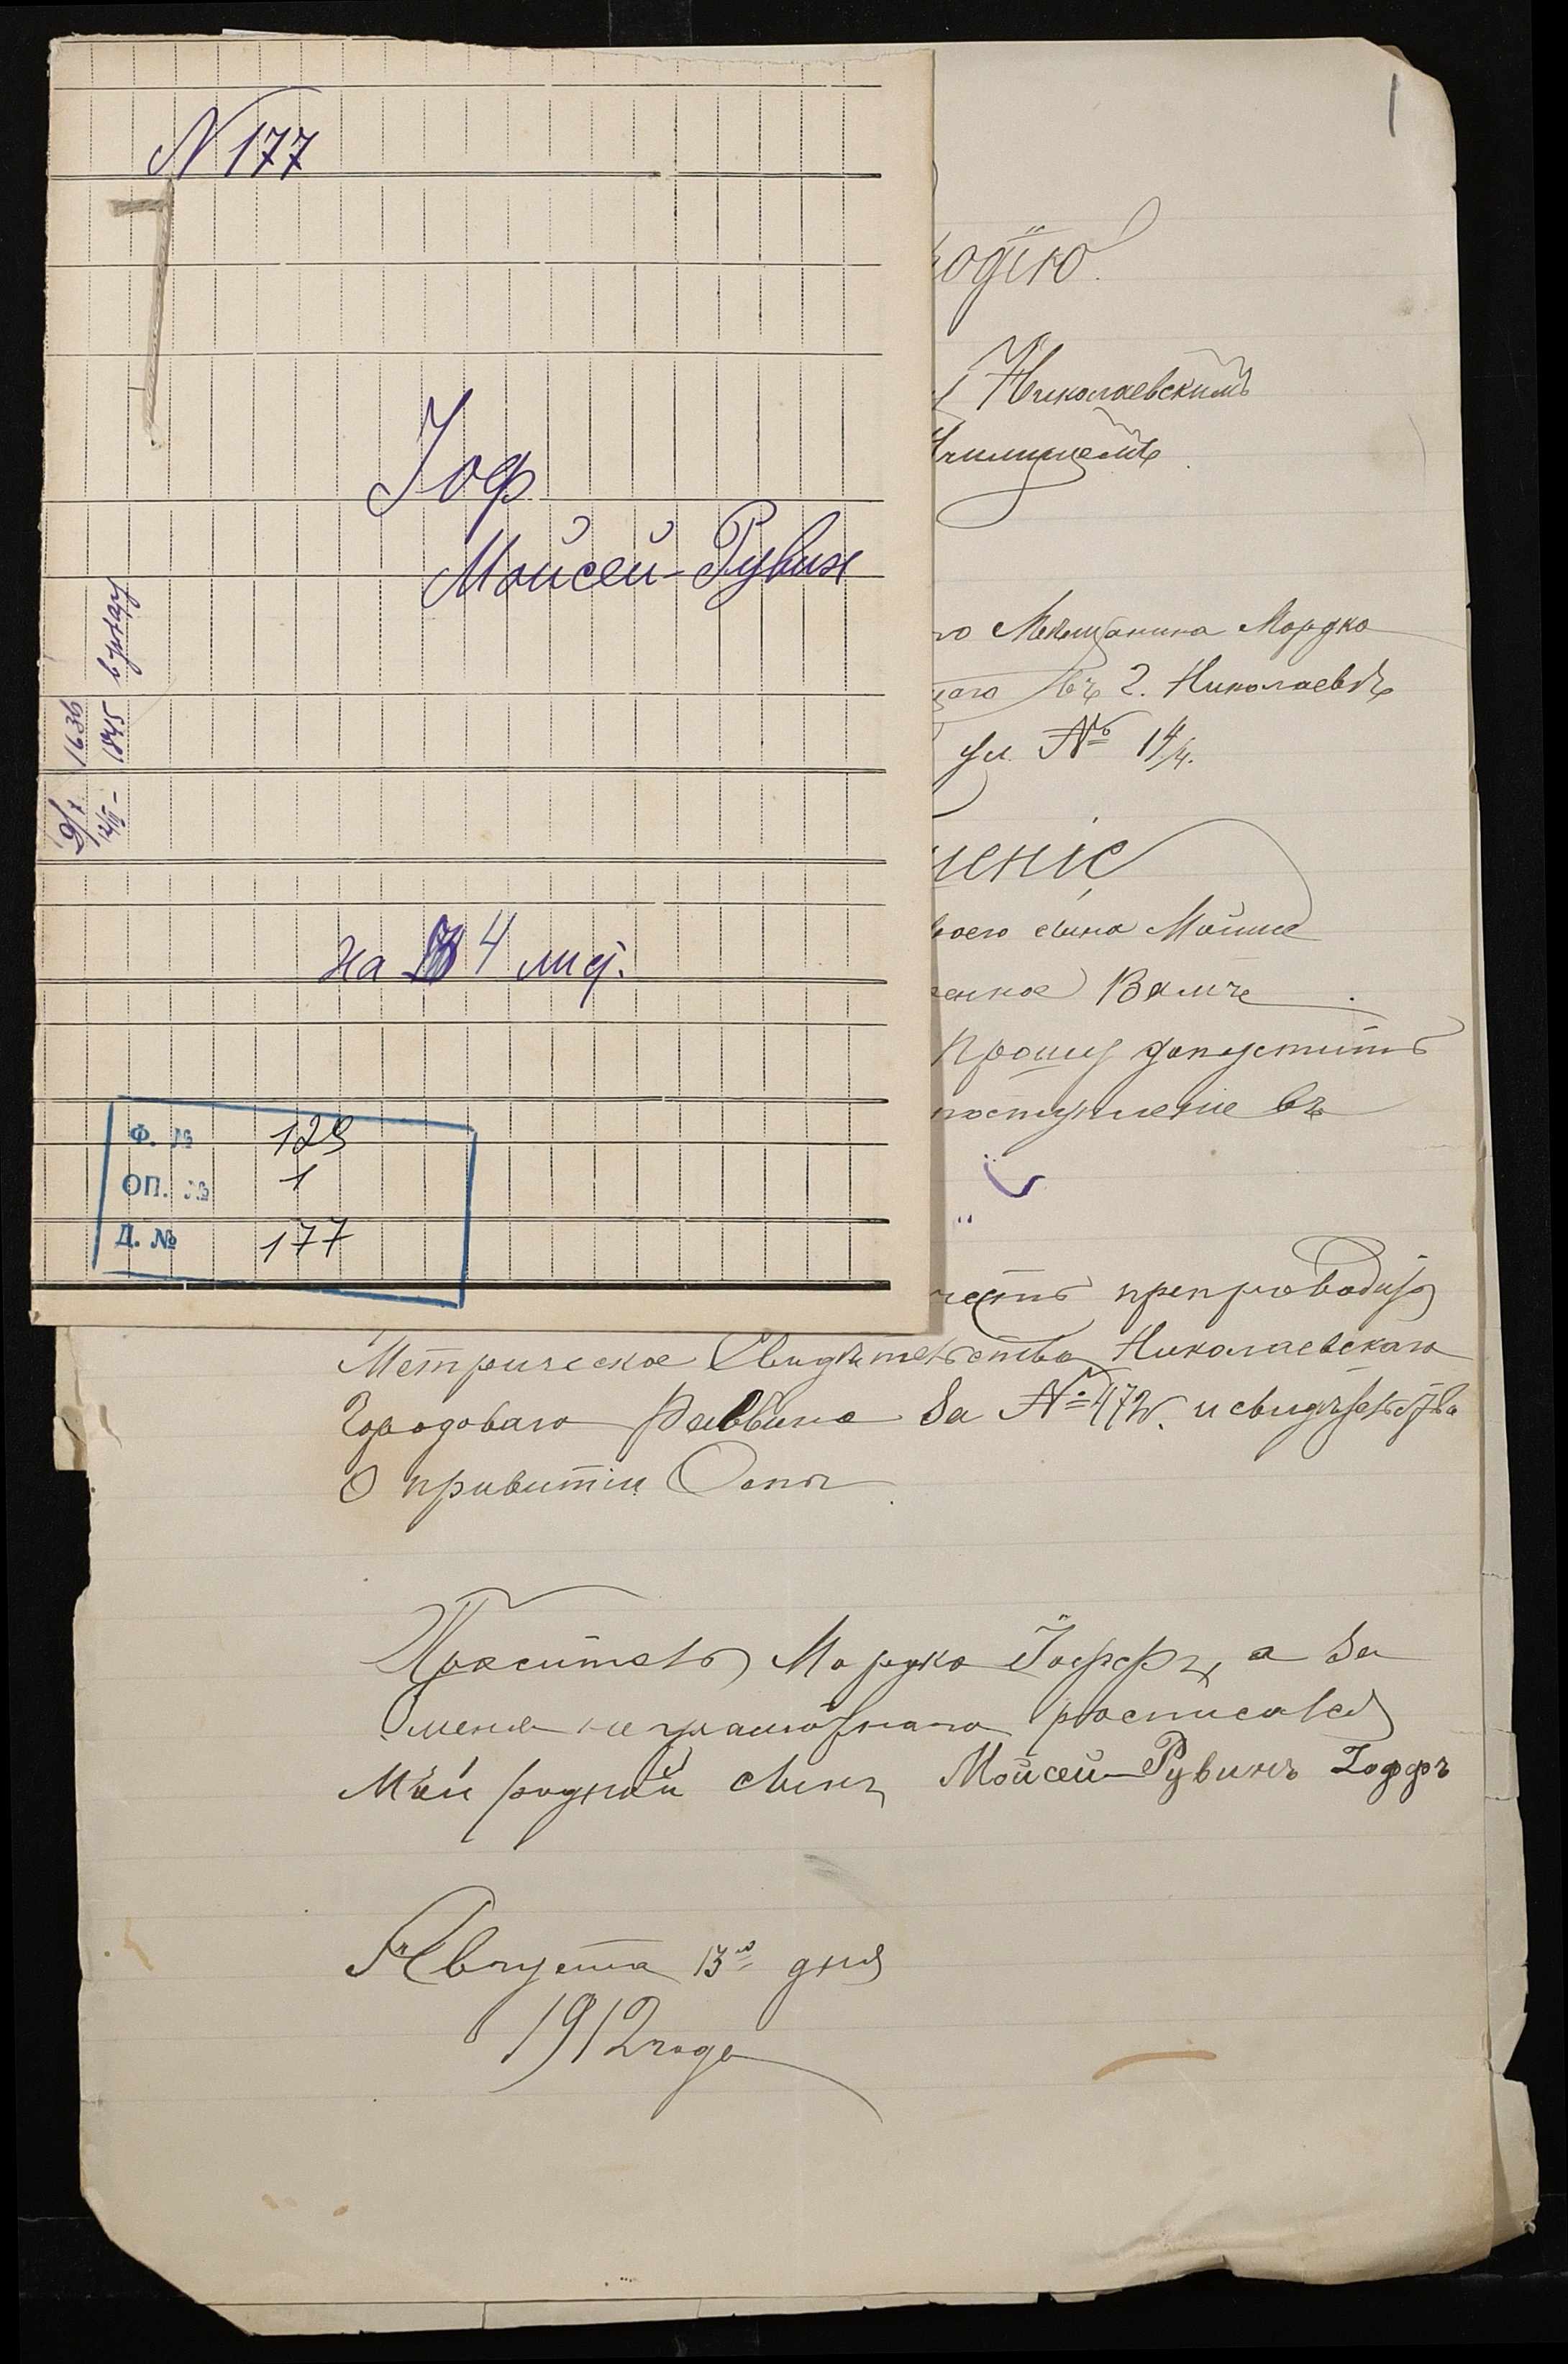 N 177
Іоф
Мойсей-Рувин
на 4 лис.
1636
1845
Ф. № 129
ОП. № 1
Д. № 177
1
Николаевскимъ
Мѣщанина Мордко
въ г. Николаевѣ
ул. №
сына
Вами
прошу допустить
поступление въ
честь препроводить
Метрическое Свидѣтельство Николаевскаго
Городоваго Раввина за № и свидѣтельство
о привитіи Оспы
Проситель Мордко Іоффъ, а за
меня неграмотнаго росписался
Мой родной сынъ Мойсей-Рувинъ Іоффъ
Августа 13го дня
1912 года